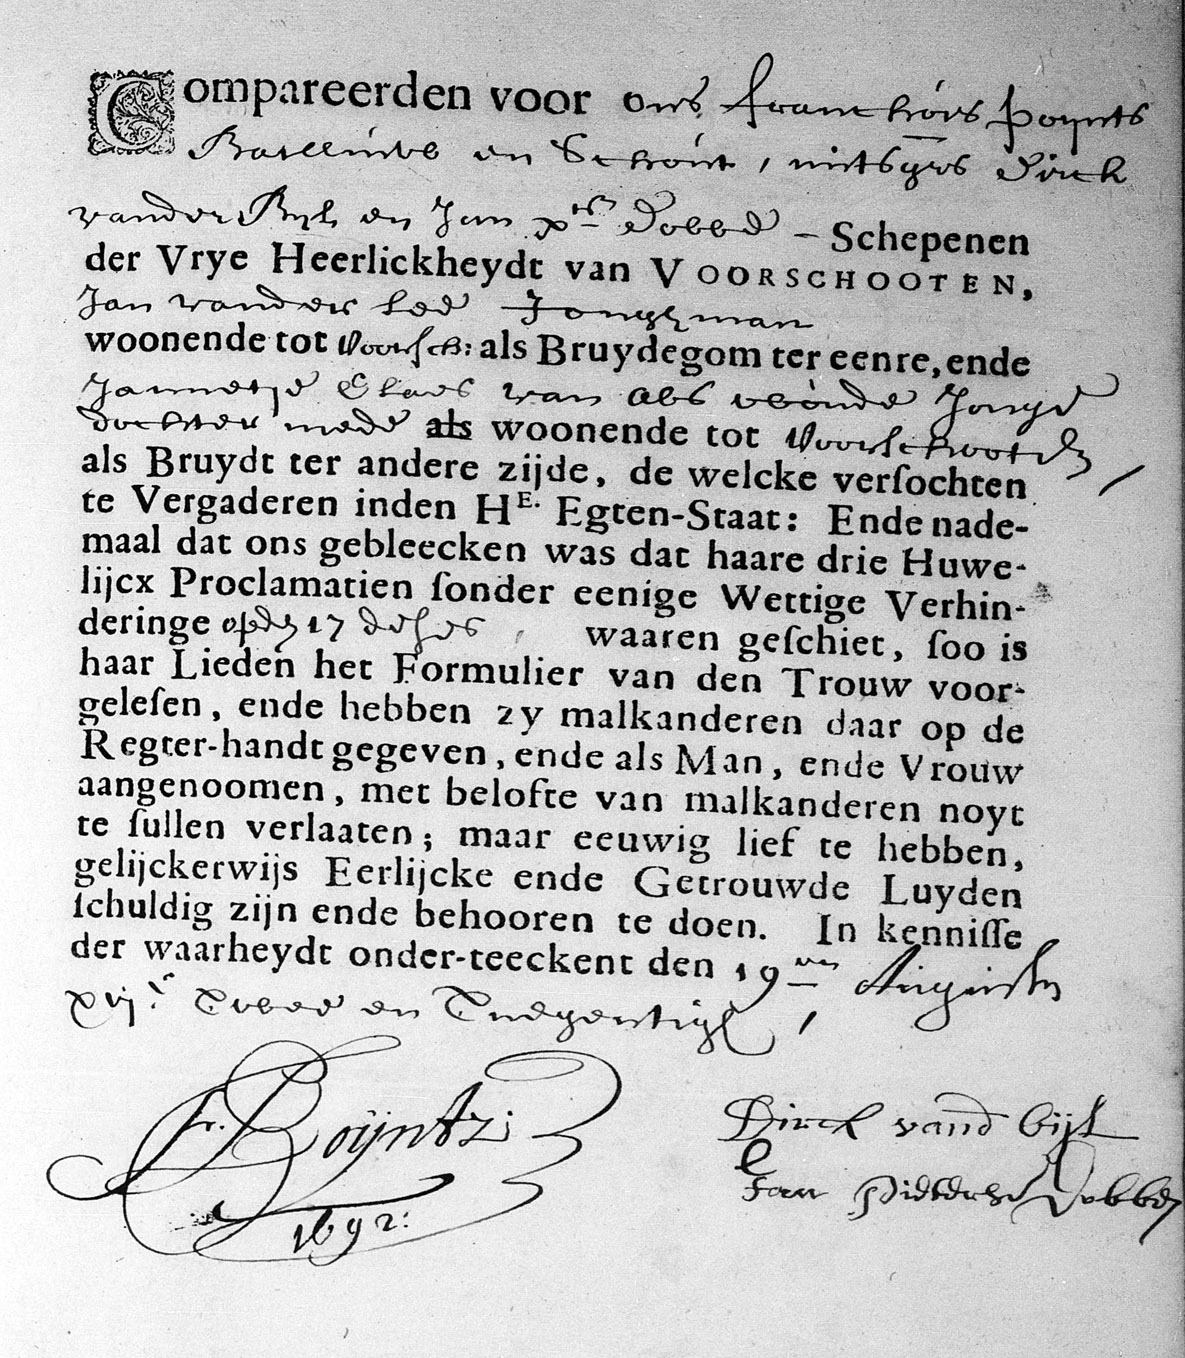 Compareerden voor ons Franchois Poynts
Bailliuw en Schout, mitsgrs Dirck
vander Bijl en Jan prs Dobbe – Schepenen
der Vrye Heerlickheydt van VOORSCHOOTEN,
Jan vander Lee Jonghman
woonende tot Voorsch: als Bruydegom ter eenre, ende
Jannetje Claes van Abs Jonge
dochter mede als woonende tot Voorschooten,
als Bruydt ter andere zijde, de welcke verſochten
te Vergaderen inden HE. Egten-Staat: Ende nade-
maal dat ons gebleecken was dat haare drie Huwe-
lijcx Proclamatien ſonder eenige Wettige Verhin-
deringe opden 17 deses waaren geſchiet, ſoo is
haar Lieden het Formulier van den Trouw voor-
geleſen, ende hebben zy malkanderen daar op de
Regter-handt gegeven, ende als Man, ende Vrouw
aangenoomen, met belofte van malkanderen noyt
te ſullen verlaaten; maar eeuwig lief te hebben,
gelijckerwijs Eerlijcke ende Getrouwde Luyden
ſchuldig zijn ende behooren te doen. In kenniſſe
der waarheydt onder-teeckent den 19en Augusty
xvjc Twee en Tnegentigh,
Fr. Poijntz;
1692:
Dirck vand bijl
Jan Pieterse Dobben